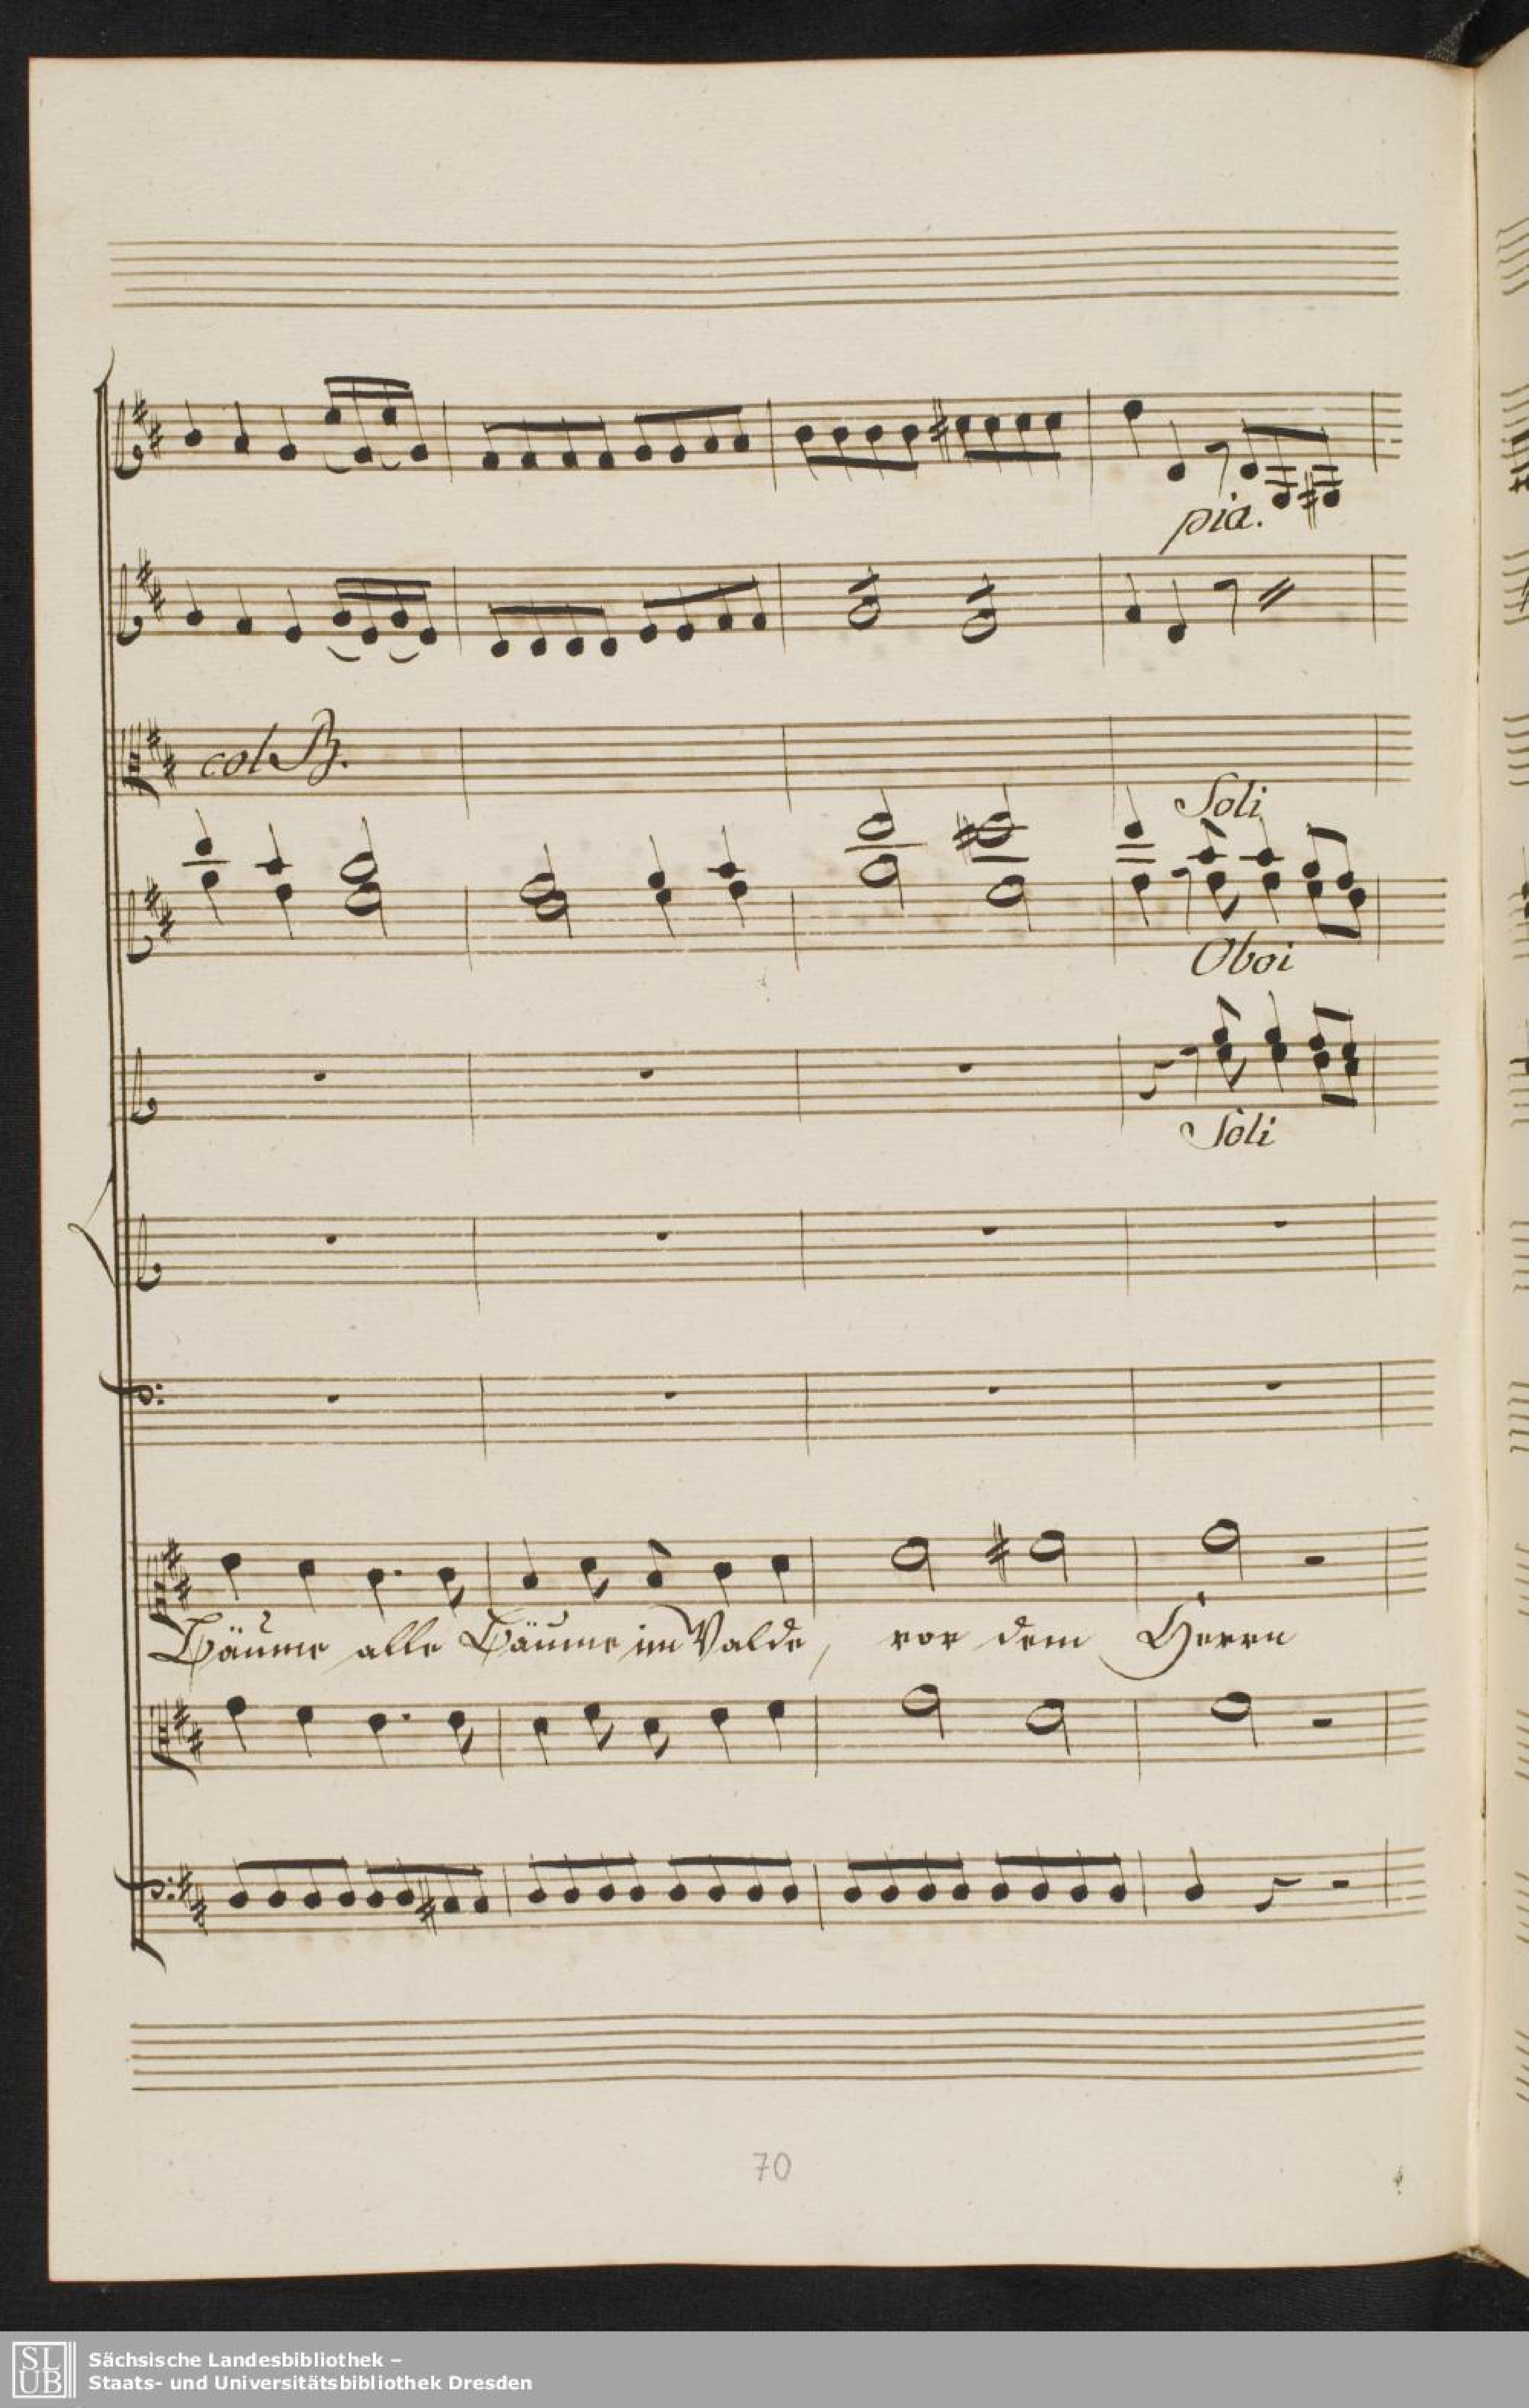 pia.
col B.
Soli
Oboi
Soli
Bäume alle Bäume im Walde, vor dem Herrn
70
SLUB
Sächsische Landesbibliothek –
Staats- und Universitätsbibliothek Dresden